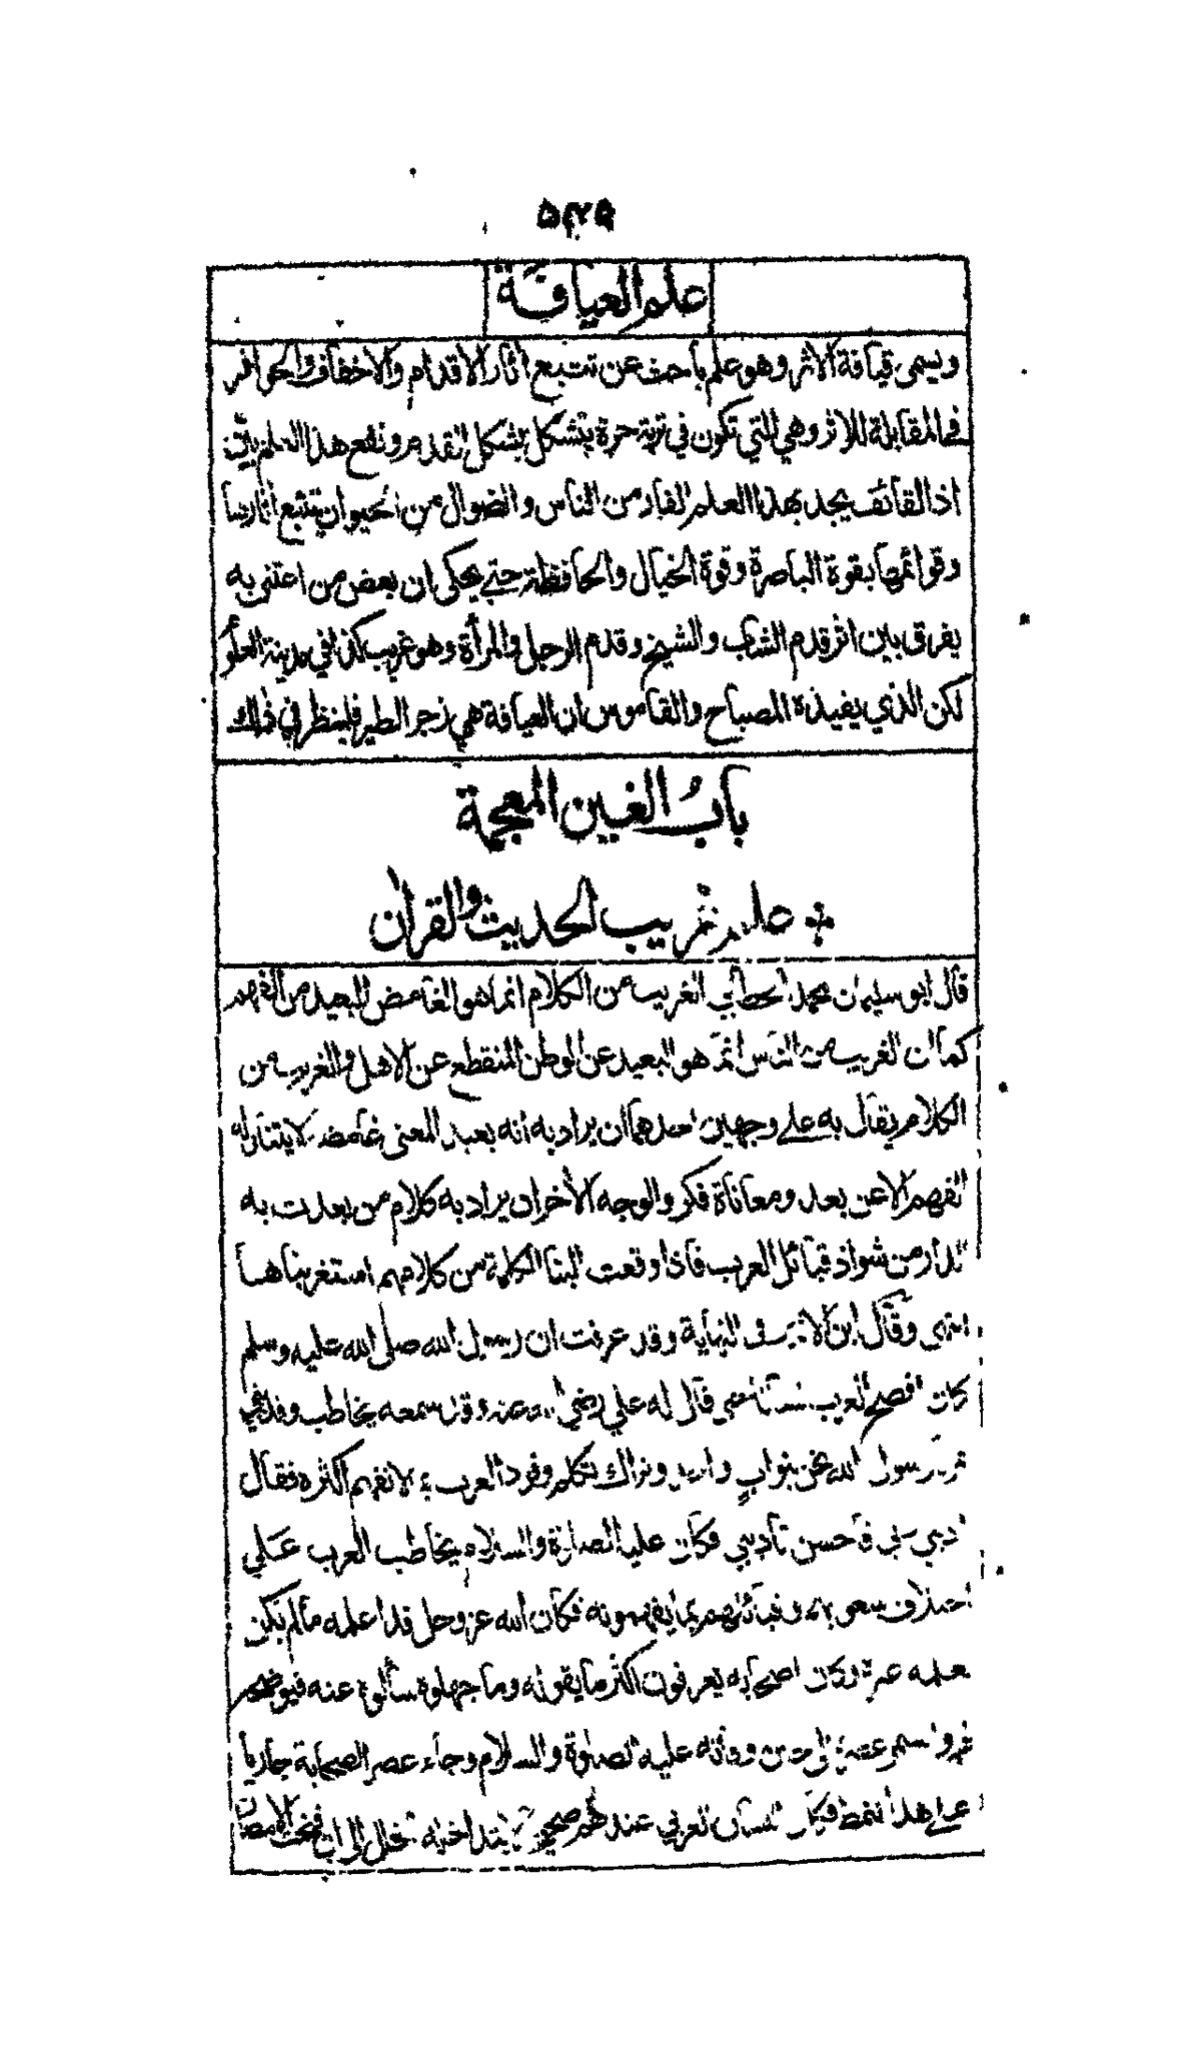 ۵۴۹
علم العيافة
ويسمى قيافة الاثر وهو علم باحث عن تتبع اثار الاقدام والاخفاف والحوافر
في المقابلة للاثر وهي التي تكون في تربة حرة يتشكل بشكل القدم ونفع هذا العلم بين
اذ القائف يجد بهذا العلم الفار من الناس والضوال من الحيوان يتتبع اثارها
وقوائمها بقوة الباصرة وقوة الخيال والحافظة حتى يحكى ان بعض من اعتنى به
يفرق بين اثر قدم الشاب والشيخ وقدم الرجل والمرأة وهو غريب كذا في مدينة العلو
لكن الذي يفيذه المصباح والقاموس ان العيافة هي زجر الطير فلينظر في ذلك
باب الغين المعجمة
علم غريب الحديث والقران
قال ابو سليمان محمد الخطابي الغريب من الكلام انما هو الغامض البعيد من الفهم
كما ان الغريب من الناس انما هو البعيد عن الوطن المنقطع عن الاهل والغريب من
الكلام يقال به على وجهين احدهما ان يراد به انه بعيد المعنى غامضه لا يتناوله
الفهم الا عن بعد ومعاناة فكر والوجه الأخر ان يراد به كلام من بعدت به
الدار من شواذ قبائل العرب فاذا وقعت الينا الكلمة من كلامهم استغربناها
انتهى وقال ابن الاثير في النهاية وقد عرفت ان رسول الله صلى الله عليه وسلم
كان افصح العرب لسانا حتى قال له علي رضي الله عنه وقد سمعه يخاطب وفد بني
نهد يا رسول الله نحن بنو اب واحد ونراك تكلم وفود العرب بما لا نفهم اكثره فقال
ادبني ربي فاحسن تأديبي فكان عليه الصلوة والسلام يخاطب العرب على
اختلاف شعوبهم وقبائلهم بما يفهمونه فكان الله عز وجل قد اعلمه مالم يكن
يعلمه غيره وكان اصحابه يعرفون اكثر ما يقوله وما جهلوه سألوه عنه فيوضحه
لهم واستمر عصره الى حين وفاته عليه الصلوة والسلام وجاء عصر الصحابة جاريا
على هذا النمط فكان اللسان العربي عندهم صحيحا لا يتداخله الخلل الى ان فتحت الامصار